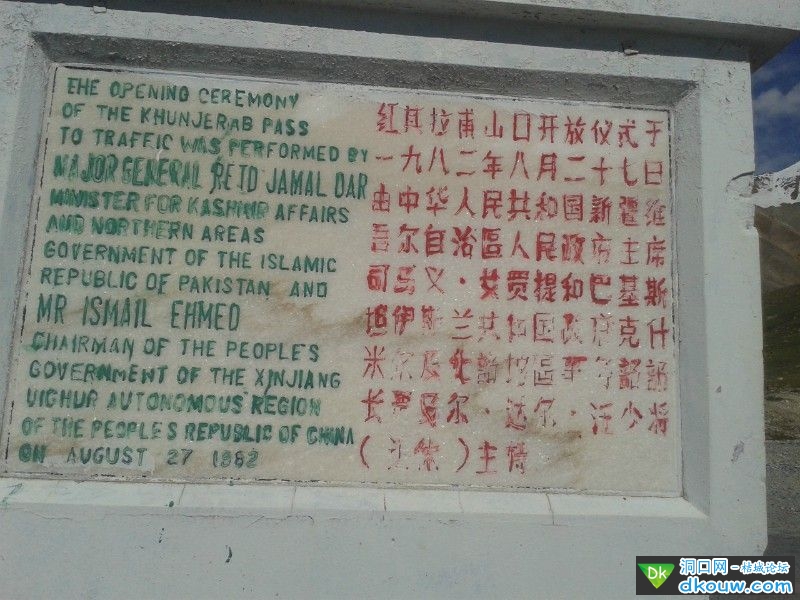 THE OPENING CEREMONY
OF THE KHUNJERAB PASS
TO TRAFFIC WAS PERFORMED BY
MAJOR GENERAL RETD JAMAL DAR
MINISTER FOR KASHMIR AFFAIRS
AND NORTHERN AREAS
GOVERNMENT OF THE ISLAMIC
REPUBLIC OF PAKISTAN AND
MR ISMAIL EHMED
CHAIRMAN OF THE PEOPLE'S
GOVERNMENT OF THE XINJIANG
UIGHUR AUTONOMOUS REGION
OF THE PEOPLE'S REPUBLIC OF CHINA
ON AUGUST 27 1982
红其拉甫山口开放仪式于
一九八二年八月二十七日
由中华人民共和国新疆维
吾尔自治區人民政府主席
司马义·买提和巴基斯
坦伊斯兰共和国政府克什
米尔及北部地區事务部
长贾马尔·达尔·汪少将
（退休）主持
Dk
洞口网-桔城论坛
dkouw.com